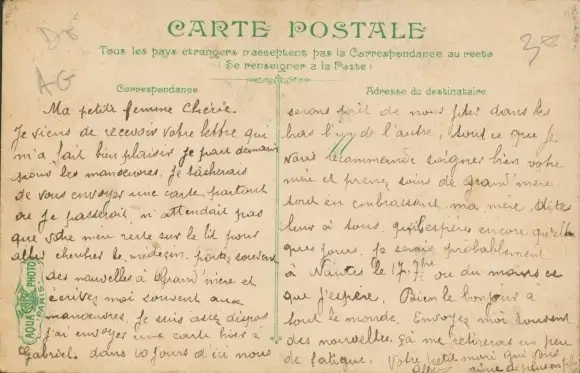 CARTE POSTALE
Tous les pays étrangers n'acceptent pas la Correspondance au recto
(Se renseigner à la Poste)
Correspondance
Ma petite femme Chérie.
Je viens de recevoir votre lettre qui
m'a fait bien plaisir je part demain
pour les manoeuvres. Je tâcherais
de vous envoyer une carte partout
ou je passerait, n'attendait pas
que votre mère reste sur le lit pour
aller chercher le médecin. portez souvent
des nouvelles à Grand'mère et
écrivez moi souvent aux
manoeuvres. Je suis assez dispos
j'ai envoyer une carte hier à
Gabriel. dans 10 jours d'ici nous
Adresse du destinataire
serons prêt de nous jeter dans les
bras l'un de l'autre, tout ce que je
vous recommande soigner bien votre
mère et prenez soins de Grand'mère
tout en embrassant ma mère. Dites
leur à tous, qu'ils espères encore quelle
ques jours, je serais probablement
à Nantes le 17-7bre ou du moins ce
que j'espère. Bien le bonjour à
tout le monde. Envoyez moi souvent
des nouvelles, ça me retirerais un peu
de fatigue. Votre petit mari qui vous
aime
AQUA PHOTO
PARIS
AG